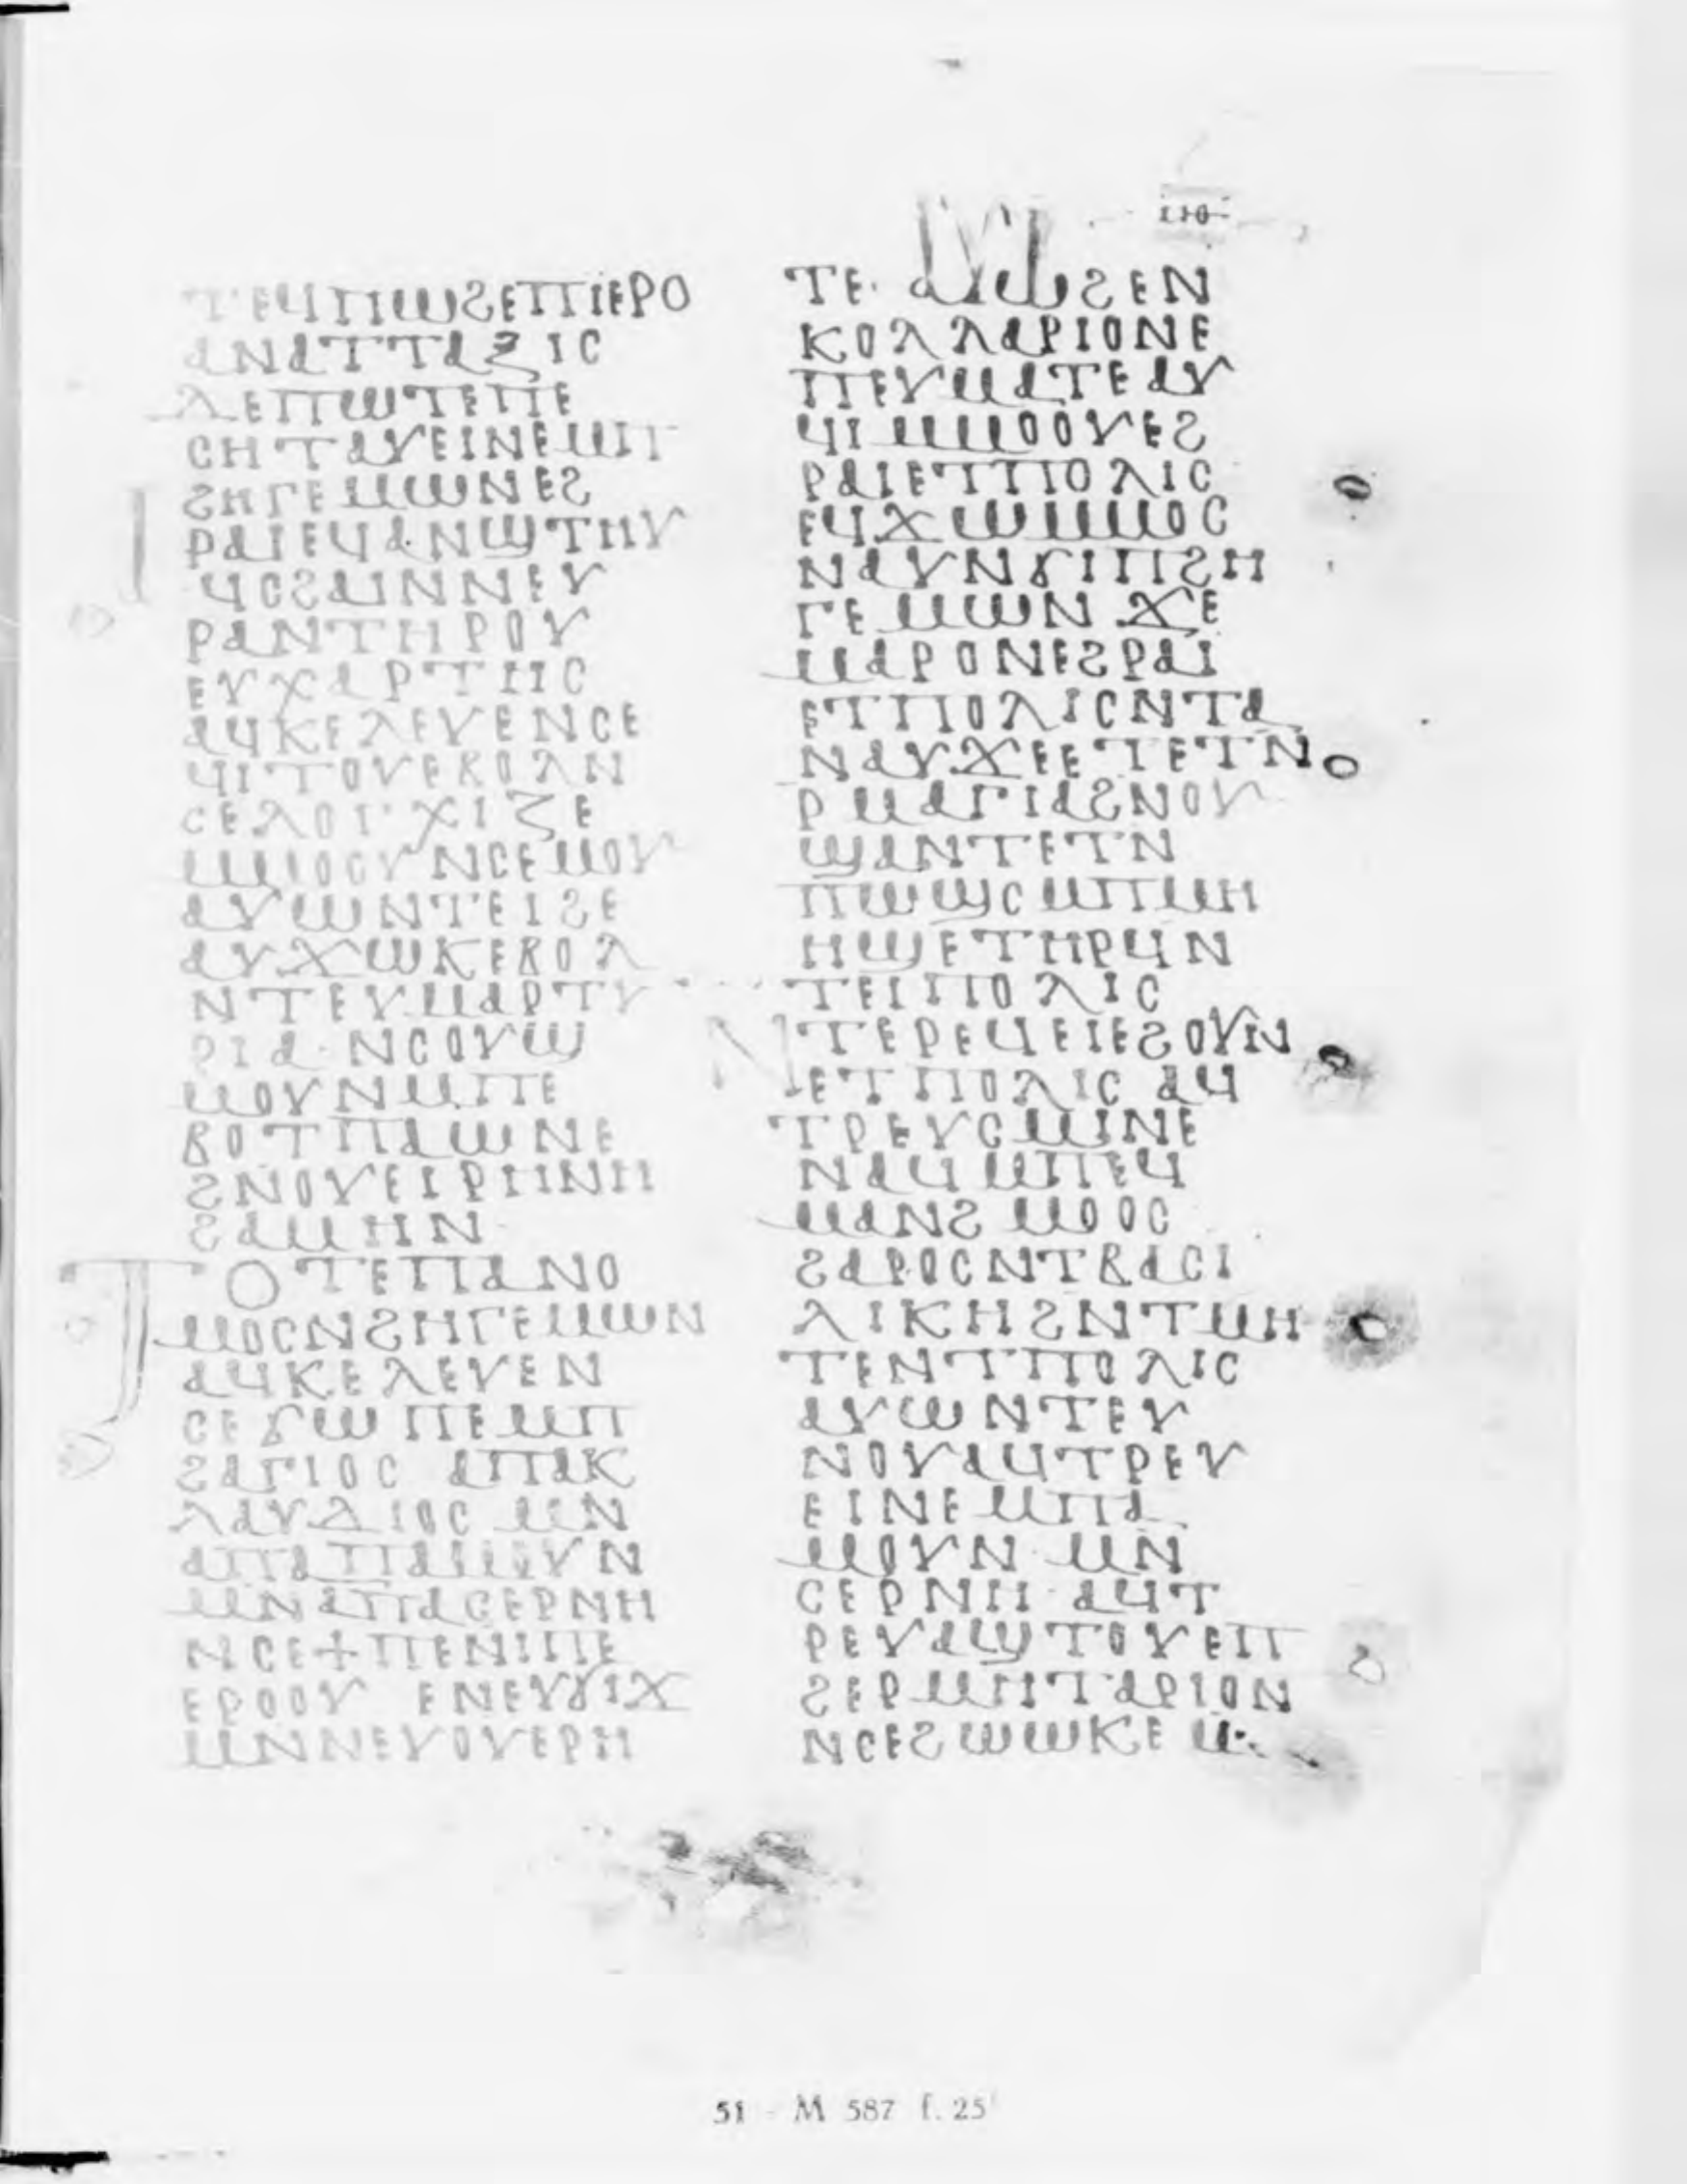 ⲧⲉϥⲡⲱϩⲉⲡⲓⲉⲣⲟ
ⲁⲛⲁⲧⲧⲁⲝⲓⲥ
ⲗⲉⲡⲱⲧⲉⲡⲉ
ⲥⲏⲧⲁⲩⲉⲓⲛⲉⲙⲡ
ϩⲏⲅⲉⲙⲱⲛⲉϩ
ⲣⲁⲓⲉϥⲁⲛϣⲧⲏⲩ
ϥⲥϩⲁⲓⲛⲛⲉⲩ
ⲣⲁⲛⲧⲏⲣⲟⲩ
ⲉⲩⲭⲁⲣⲧⲏⲥ
ⲁϥⲕⲉⲗⲉⲩⲉⲛⲥⲉ
ϥⲓⲧⲟⲩⲉⲃⲟⲗⲛ
ⲥⲉⲗⲟⲅⲭⲓⲍⲉ
ⲙⲙⲟⲟⲩⲛⲥⲉⲙⲟⲩ
ⲁⲩⲱⲛⲧⲉⲓϩⲉ
ⲁⲩϫⲱⲕⲉⲃⲟⲗ
ⲛⲧⲉⲩⲙⲁⲣⲧⲩ
ⲣⲓⲁ ⲛⲥⲟⲩϣ
ⲙⲟⲩⲛⲙⲡⲉ
ⲃⲟⲧⲡⲁⲱⲛⲉ
ϩⲛⲟⲩⲉⲓⲣⲏⲛⲏ
ϩⲁⲙⲏⲛ
ⲧⲟⲧⲉⲡⲁⲛⲟ
ⲙⲟⲥⲛϩⲏⲅⲉⲙⲱⲛ
ⲁϥⲕⲉⲗⲉⲩⲉⲛ
ⲥⲉϭⲱⲡⲉⲙⲡ
ϩⲁⲅⲓⲟⲥ ⲁⲡⲁⲕ
ⲗⲁⲩⲇⲓⲟⲥ ⲙⲛ
ⲁⲡⲁⲡⲁⲙⲟⲩⲛ
ⲙⲛⲁⲡⲁⲥⲉⲣⲛⲏ
ⲛⲥⲉϯⲡⲉⲛⲓⲡⲉ
ⲉⲣⲟⲟⲩ ⲉⲛⲉⲩϭⲓϫ
ⲙⲛⲛⲉⲩⲟⲩⲉⲣⲏ
ⲧⲉ· ⲁⲩⲱϩⲉⲛ
ⲕⲟⲗⲗⲁⲣⲓⲟⲛⲉ
ⲡⲉⲩⲙⲁⲧⲉ ⲁⲩ
ϥⲓ ⲙⲙⲟⲟⲩⲉϩ
ⲣⲁⲓⲉⲧⲡⲟⲗⲓⲥ
ⲉϥϫⲱⲙⲙⲟⲥ
ⲛⲁⲩⲛϭⲓⲡϩⲏ
ⲅⲉⲙⲱⲛ ϫⲉ
ⲙⲁⲣⲟⲛⲉϩⲣⲁⲓ
ⲉⲧⲡⲟⲗⲓⲥⲛⲧⲁ
ⲛⲁⲩϫⲉⲉⲧⲉⲧⲛ
ⲣⲙⲁⲅⲓⲁϩⲛⲟⲩ
ϣⲁⲛⲧⲉⲧⲛ
ⲡⲱϣⲥⲙⲡⲙⲏ
ⲏϣⲉⲧⲏⲣϥⲛ
ⲧⲉⲓⲡⲟⲗⲓⲥ
ⲛⲧⲉⲣⲉϥⲉⲓⲉϩⲟⲩⲛ
ⲉⲧⲡⲟⲗⲓⲥ ⲁϥ
ⲧⲣⲉⲩⲥⲙⲓⲛⲉ
ⲛⲁϥ ⲙⲡⲉϥ
ⲙⲁⲛϩⲙⲟⲟⲥ
ϩⲁⲣⲟⲥⲛⲧⲃⲁⲥⲓ
ⲗⲓⲕⲏϩⲛⲧⲙⲏ
ⲧⲉⲛⲧⲡⲟⲗⲓⲥ
ⲁⲩⲱⲛⲧⲉⲩ
ⲛⲟⲩⲁϥⲧⲣⲉⲩ
ⲉⲓⲛⲉⲙⲡⲁ
ⲙⲟⲩⲛ ⲙⲛ
ⲥⲉⲣⲛⲏ ⲁϥⲧ
ⲣⲉⲩⲁϣⲧⲟⲩⲉⲡ
ϩⲉⲣⲙⲏⲧⲁⲣⲓⲟⲛ
ⲛⲥⲉϩⲱⲱⲕⲉ ⲙ
51 - M 587 f. 25